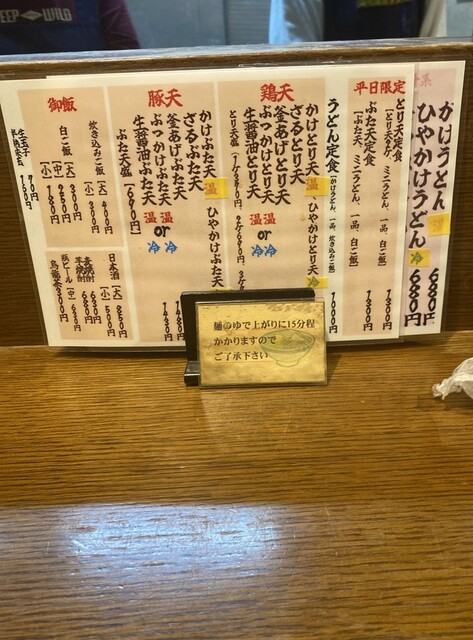 かけうどん 温 680円
ひやかけうどん 冷 680円
平日限定
とり天定食 1300円
[とり天2ケ、ミニうどん、一品、白ご飯]
ぶた天定食 1300円
[ぶた天、ミニうどん、一品、白ご飯]
うどん定食 (かけうどん、一品、炊き込みご飯) 1000円
鶏天
かけとり天 温、ひやかけとり天 冷
ざるとり天
釜あげとり天
ぶっかけとり天 温 or 冷
生醤油とり天 温 or 冷
豚天
かけぶた天 温 ひやかけぶた天
ざるぶた天
釜あげぶた天
ぶっかけぶた天 温 or 冷
生醤油ぶた天 温 or 冷
御飯
炊き込みご飯 [大] 400円
[小] 300円
白ご飯 [大] 250円
[中] 200円
[小] 150円
日本酒 [大] 950円
[小] 500円
瓶ビール
烏龍茶 300円
麺のゆで上がりに15分程
かかりますので
ご了承下さい